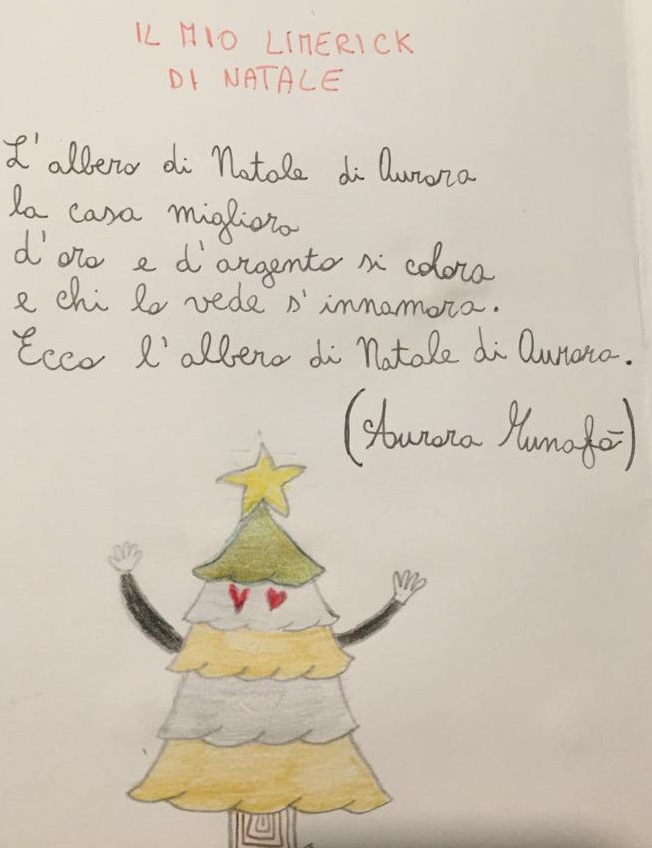 IL MIO LIMERICK
DI NATALE
L'albero di Natale di Aurora
la casa migliora
d'oro e d'argento si colora
e chi lo vede s'innamora.
Ecco l'albero di Natale di Aurora.
(Aurora Munafò)